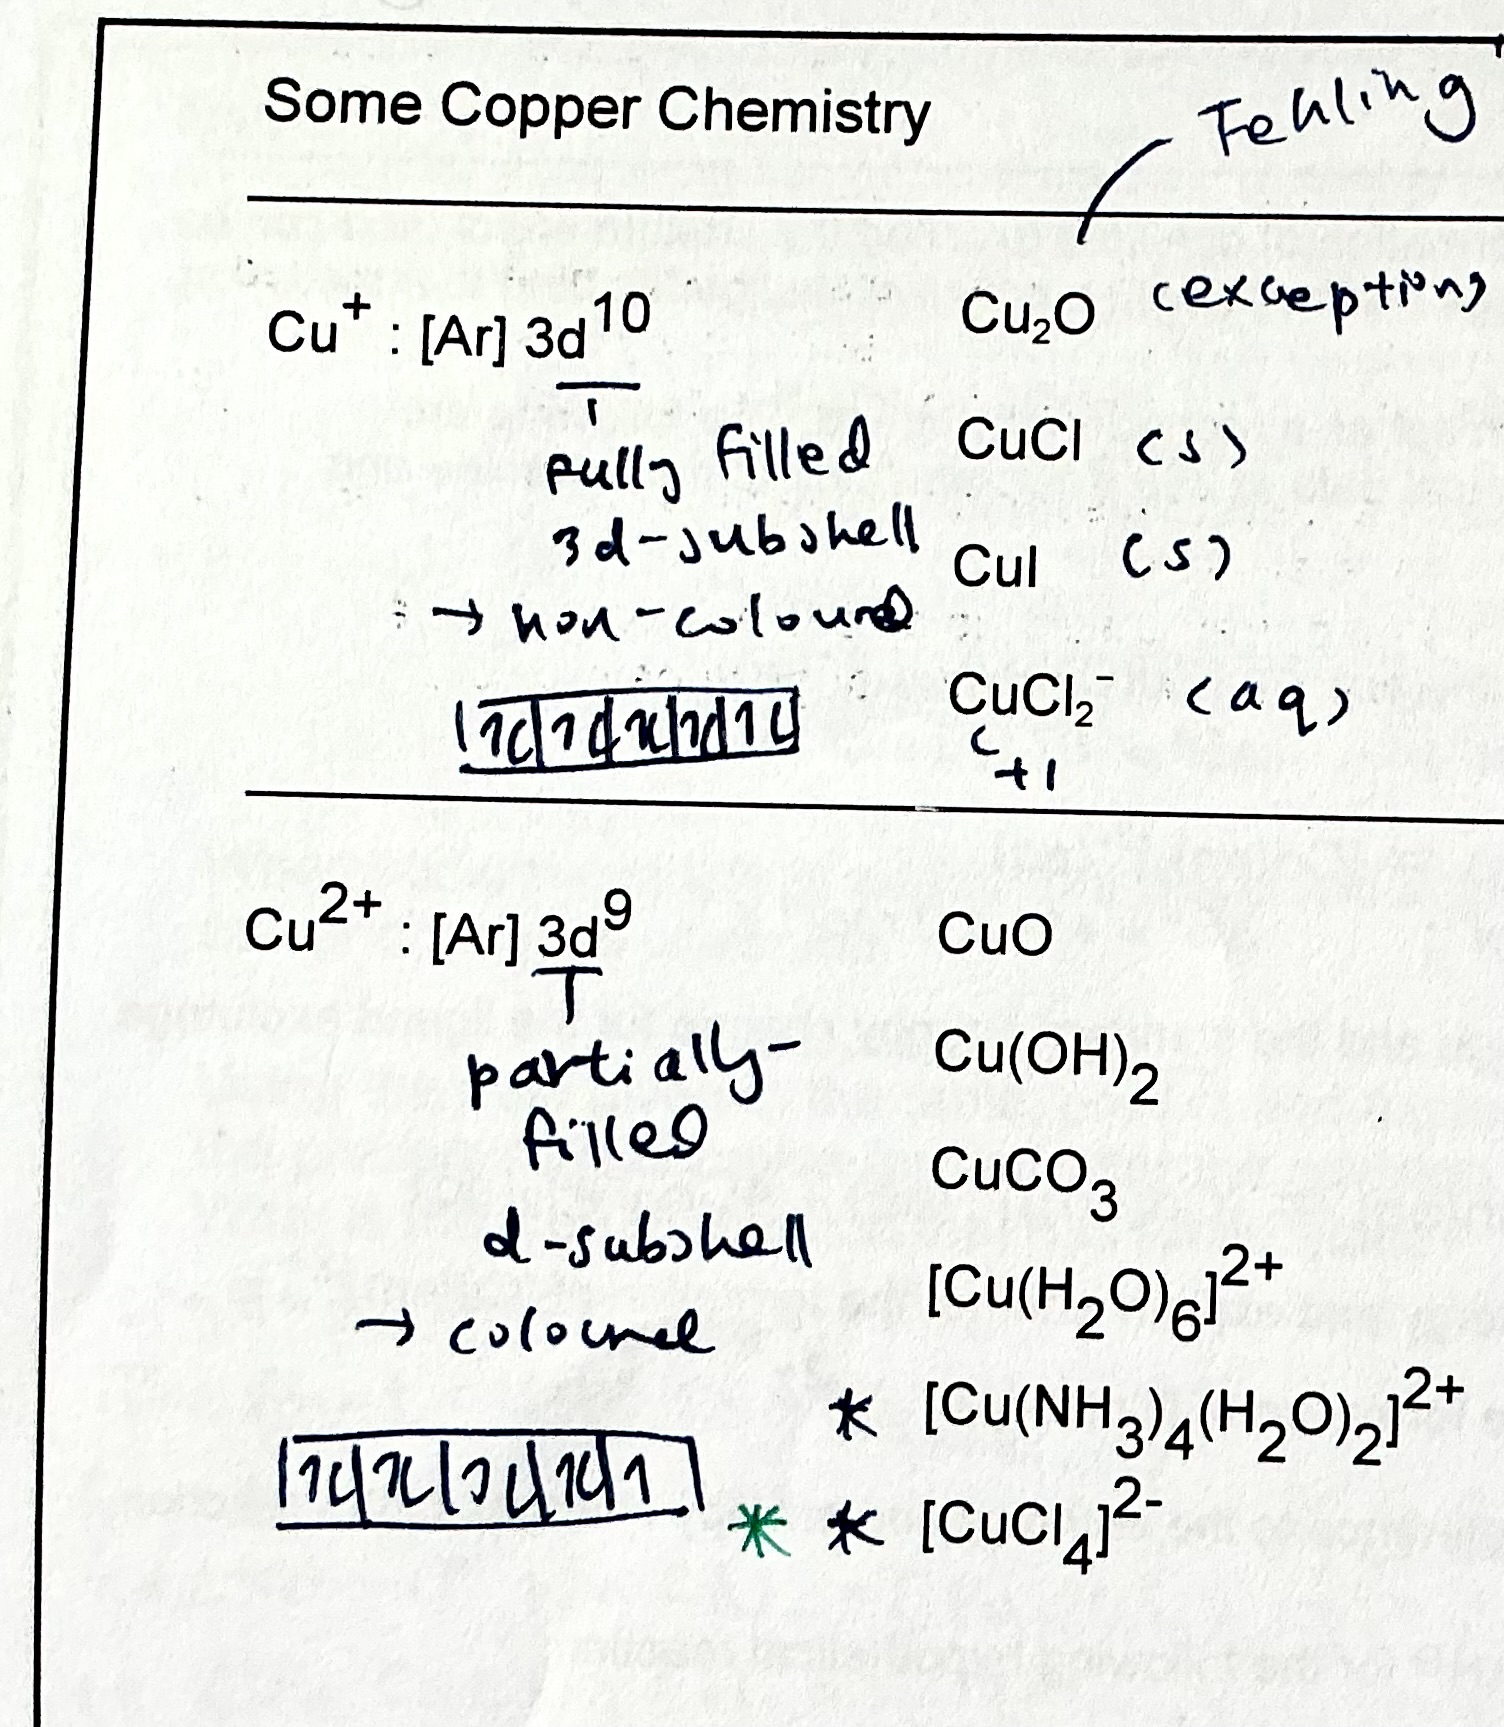 Some Copper Chemistry
Fehling
Cu⁺ : [Ar] 3d¹⁰
Cu₂O (exception)
fully filled
3d-subshell
→ non-coloured
CuCl (s)
CuI (s)
CuCl₂⁻ (aq)
+1
Cu²⁺ : [Ar] 3d⁹
partially-
filled
d-subshell
→ coloured
CuO
Cu(OH)₂
CuCO₃
[Cu(H₂O)₆]²⁺
* [Cu(NH₃)₄(H₂O)₂]²⁺
* * [CuCl₄]²⁻